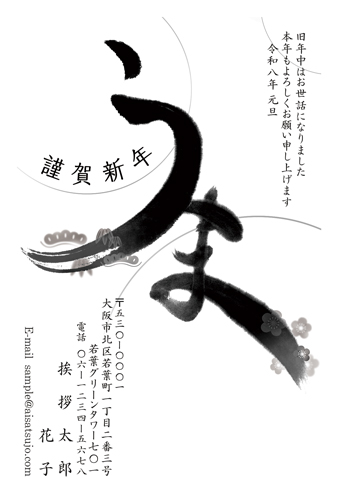 旧年中はお世話になりました
本年もよろしくお願い申し上げます
令和八年 元旦
うま
謹賀新年
〒五三〇-〇〇〇一
大阪市北区若葉町一丁目二番三号
若葉グリーンタワー七〇一
電話 〇六-一二三四-五六七八
挨拶 太郎
花子
E-mail sample@aisatsujo.com